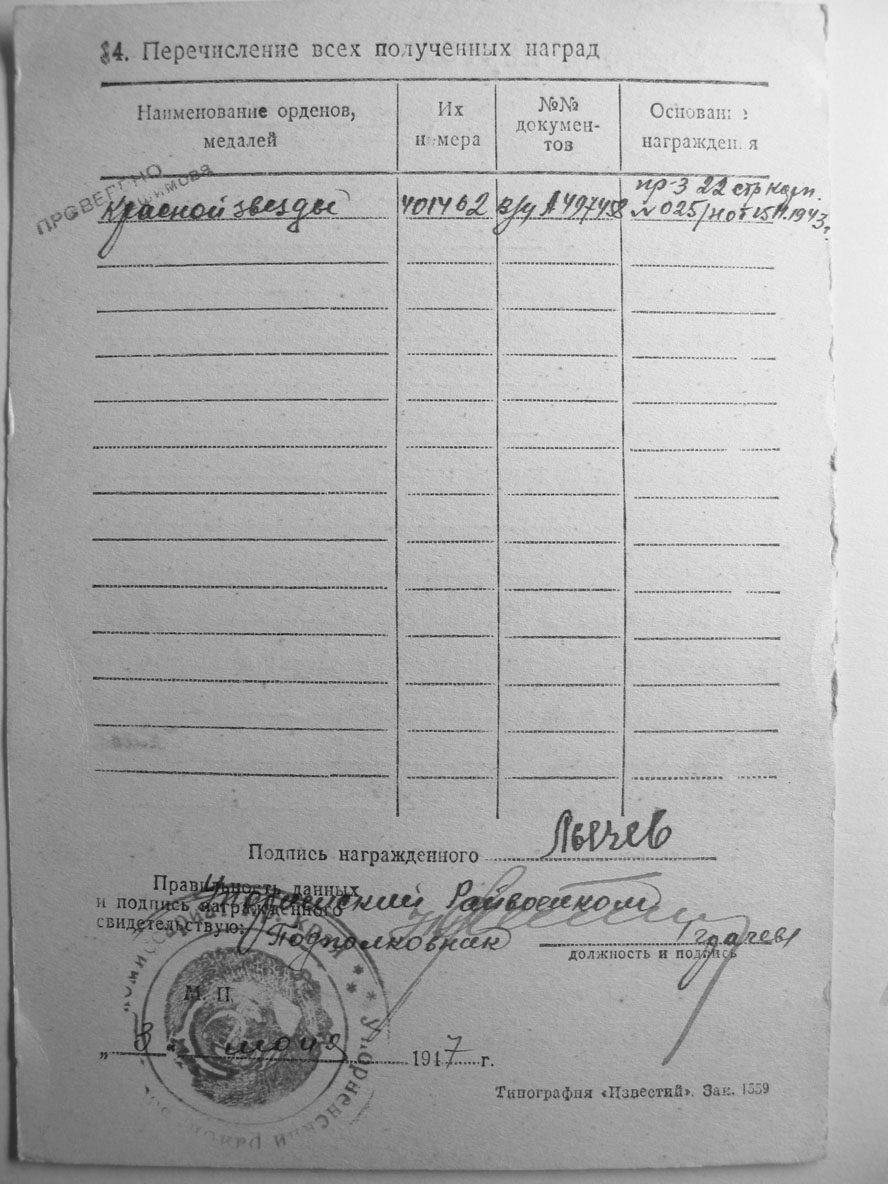 14. Перечисление всех полученных наград
Наименование орденов, медалей
Их номера
№№ докумен-тов
Основание награждения
ПРОВЕРЕНО
Красной звезды
401462
в/у А 497458
пр-з 22 стр кор.
№ 025/н от 15.11.1943 г.
Подпись награжденного Лычев
Правильность данных
и подпись награжденного
свидетельствую:
Райвоенком
Подполковник
должность и подпись
М. П.
„ 3 “ июня 1947 г.
Типография «Известий». Зак. 1559